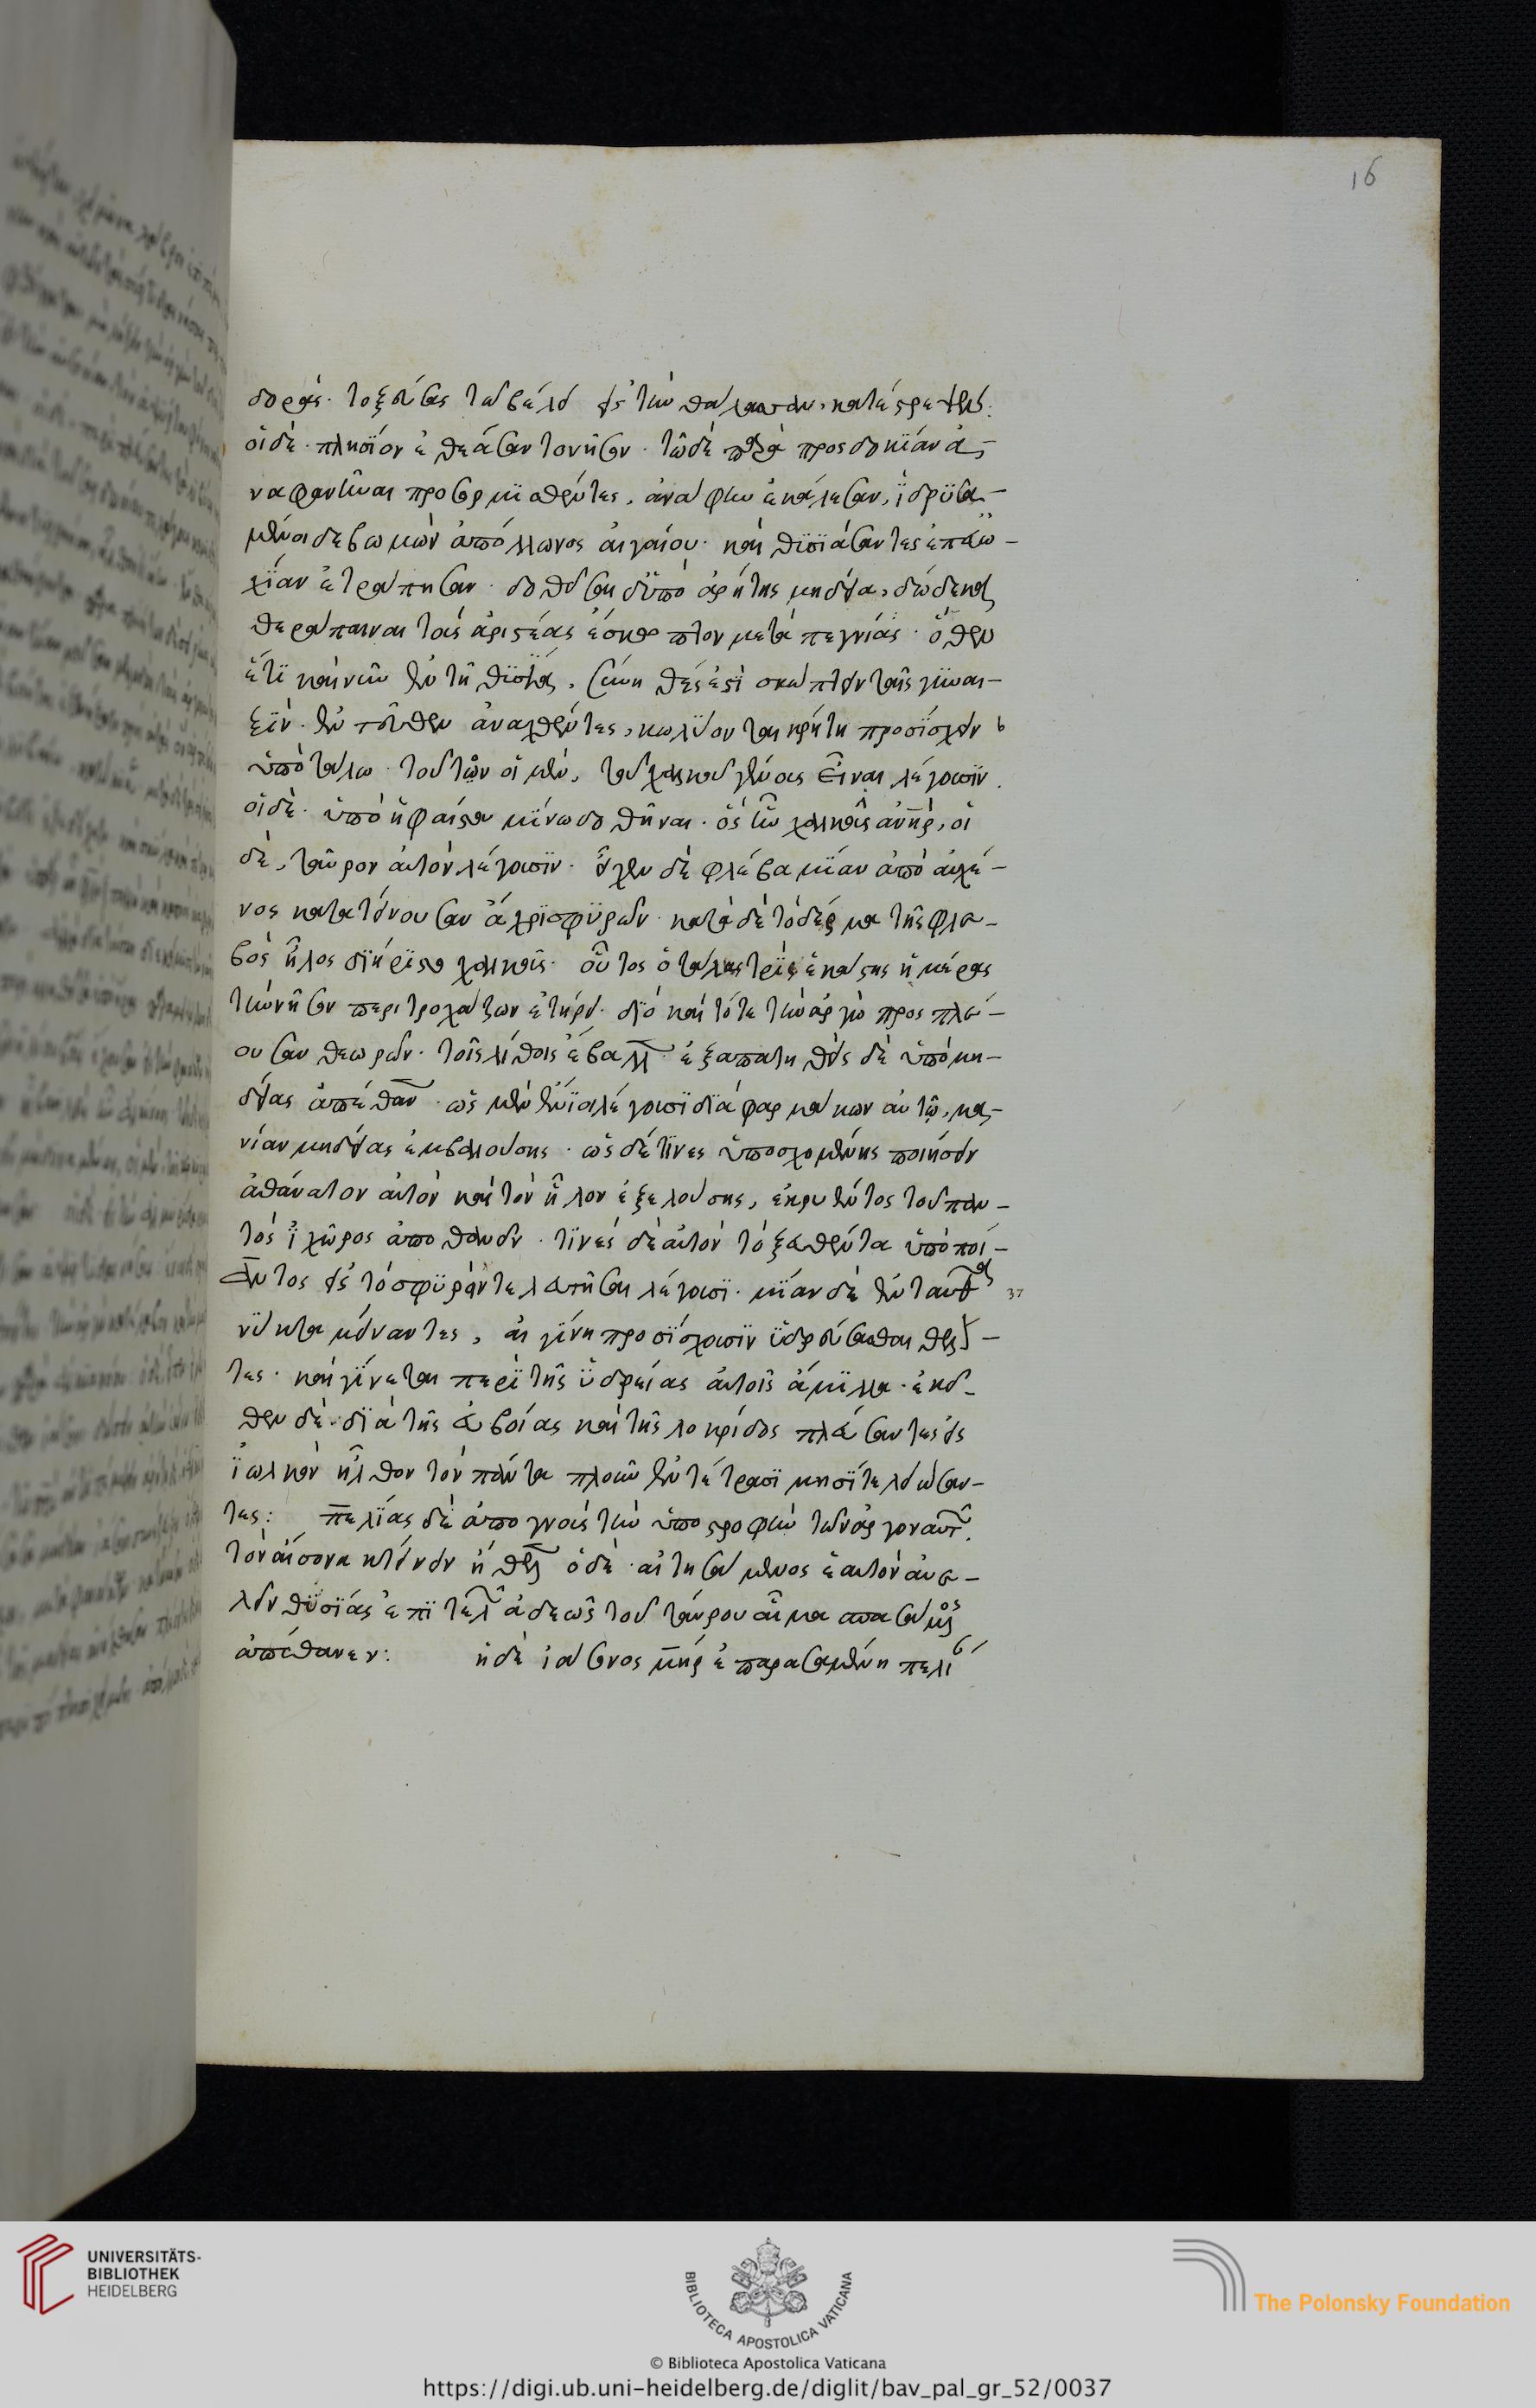 δορας. τοξεύσας τῶ βέλει εἰς τὴν θάλασσαν, κατέστρεψεν:
οἱ δὲ πλησίον ἐθεάσαντο νῆσον. τῶ δὲ παρὰ προσδοκίαν ἀ-
ναφανῆναι προσορμισθέντες, ἀνάφην ἐκάλεσαν, ἱδρυσά-
μενοι δὲ βωμὸν ἀπόλλωνος αἰγαίου. καὶ θυσιάσαντες ἐπ' εὐω-
χίαν ἐτράπησαν. δοθεῖσαι δ' ὑπὸ ἀρήτης μηδεία, δώδεκα
θεράπαιναι τοὺς ἀριστέας ἔσκωπτον μετὰ πεγνίας. ὅθεν
ἔτι καὶ νῦν ἐν τῆ θυσία, σύνηθές ἐστι σκώπτειν ταῖς γυναι-
ξίν. ἐντεῦθεν ἀναχθέντες, κωλύονται κρήτη προσίσχειν
ὑπὸ τάλω. τοῦτον οἱ μὲν, τοῦ χαλκοῦ γένους εἶναι λέγουσιν.
οἱ δὲ. ὑπὸ ἡφαίστου μίνωι δοθῆναι. ὃς ἦν χαλκοῦς ἀνήρ, οἱ
δὲ, ταῦρον αὐτὸν λέγουσιν. εἶχεν δὲ φλέβα μίαν ἀπὸ αὐχέ-
νος κατατείνουσαν ἄχρι σφυρῶν. κατὰ δὲ τὸ δέρμα τῆς φλε-
βὸς ἧλος διήρειστο χαλκοῦς. οὗτος ὁ τάλως τρὶς ἑκάστης ἡμέρας
τὴν νῆσον περιτροχάζων ἐτήρει. διὸ καὶ τότε τὴν ἀργὼ προσπλέ-
ουσαν θεωρῶν. τοῖς λίθοις ἔβαλλ. ἐξαπατηθεὶς δὲ ὑπὸ μη-
δείας ἀπέθαν. ὡς μὲν ἔνιοι λέγουσι διὰ φαρμάκων αὐτῷ, μα-
νίαν μηδείας ἐμβαλούσης. ὡς δέ τινες ὑποσχομένης ποιήσειν
ἀθάνατον αὐτὸν καὶ τὸν ἧλον ἐξελούσης, ἐκρυέντος τοῦ παν-
τὸς ἰχῶρος ἀποθανεῖν. τινὲς δὲ αὐτὸν τοξευθέντα ὑπὸ ποί-
αντος εἰς τὸ σφυρὸν τελευτῆσαι λέγουσι. μίαν δὲ ἐνταῦθα 37
νύκτα μείναντες, αἰγίνη προσίσχουσιν ὑδρεύσασθαι θελ-
τες. καὶ γίνεται περὶ τῆς ὑδρείας αὐτοῖς ἅμιλλα. ἐκεῖ-
θεν δὲ διὰ τῆς εὐβοίας καὶ τῆς λοκρίδος πλεύσαντες εἰς
ἰωλκὸν ἦλθον τὸν πάντα πλοῦν ἐν τέτρασι μησὶ τελειώσαν-
τες: πελίας δὲ ἀπογνοὺς τὴν ὑποστροφὴν τῶν ἀργοναυτ.
τὸν αἴσονα κτείνειν ἤθελ ὁ δὲ. αἰτησάμενος ἑαυτὸν ἀνε-
λεῖν θυσίας ἐπιτελ ἀδεῶς τοῦ ταύρου αἷμα σπασάμος
ἀπέθανεν: ἡ δὲ ἰάσονος μηρ ἐπαρασαμένη πελί
16
UNIVERSITÄTS-
BIBLIOTHEK
HEIDELBERG
BIBLIOTECA APOSTOLICA VATICANA
© Biblioteca Apostolica Vaticana
The Polonsky Foundation
https://digi.ub.uni-heidelberg.de/diglit/bav_pal_gr_52/0037